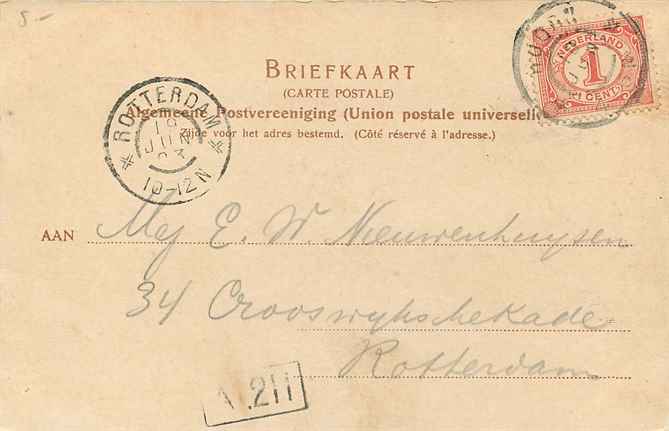 5-
BRIEFKAART
(CARTE POSTALE)
Algemeene Postvereeniging (Union postale universelle
Zijde voor het adres bestemd. (Côté réservé à l'adresse.)
NEDERLAND
1
1 CENT
ROTTERDAM
19
JUN
03
10-12N
AAN Mej E. W. Nieuwenhuysen
34 Crooswykschekade
Rotterdam
211